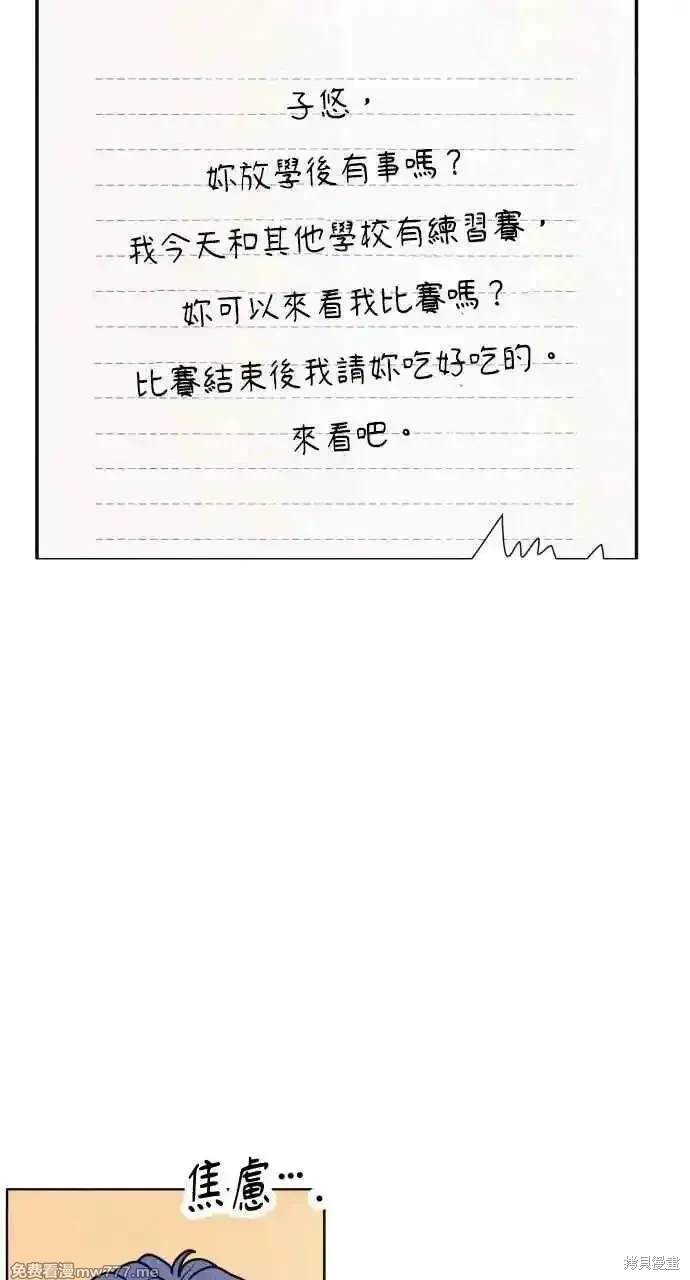 子悠，
妳放學後有事嗎？
我今天和其他學校有練習賽，
妳可以來看我比賽嗎？
比賽結束後我請妳吃好吃的。
來看吧。
焦慮⋯.
免费看漫mw777.me
拷貝漫畫